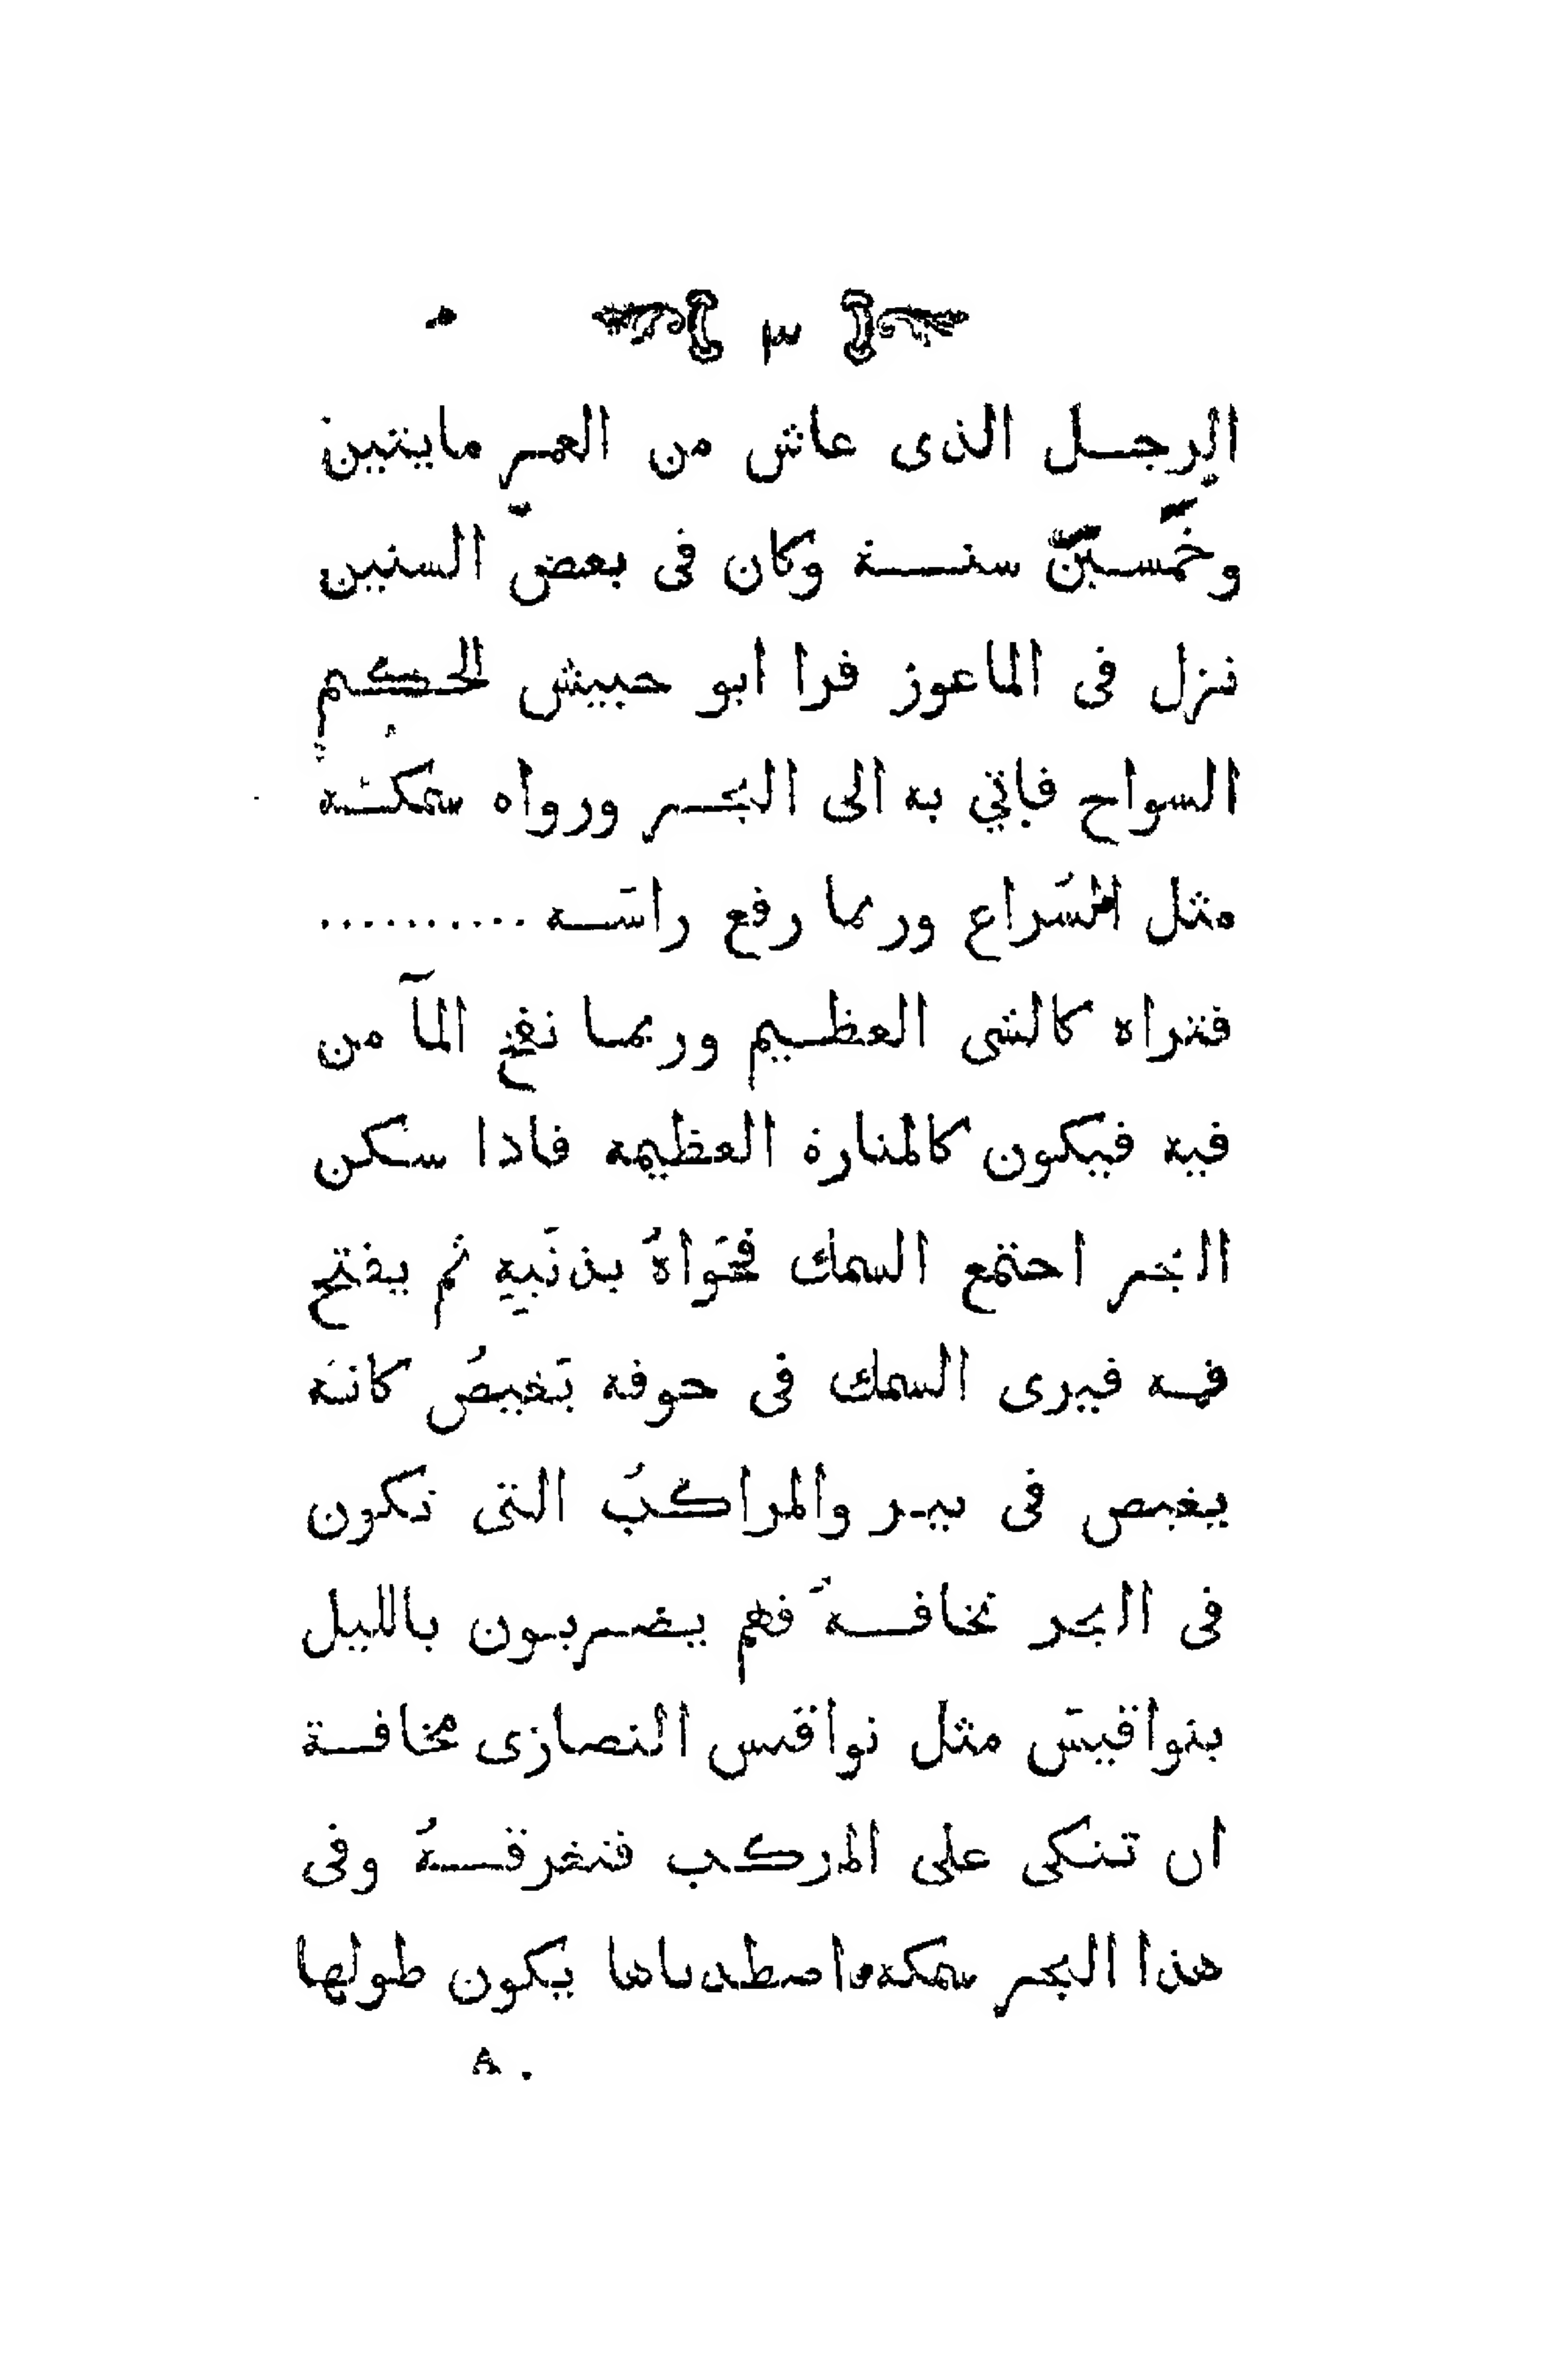 ٣
الرجل الذى عاش من العمر مايتين
وخمسين سنة وكان فى بعض السنين
نزل فى الماعوز فرا ابو حبيش الحكيم
السواح فاتي به الى البحر ورواه سمكته
مثل الشراع وربما رفع راسه ..........
فتراه كالشى العظيم وربما نفخ المآ من
فيه فيكون كالمنارة العظيمه فادا سكن
البحر احتمع السمك فحواهُ بذنَبِهِ ثم يفتح
فمه فيرى السمك فى حوفه يَغيصُ كانه
يغيص فى بير والمراكبُ التى تكون
فى البحر تخافهُ فهم يضربون بالليل
بنواقيس مثل نواقيس النصارى مخافة
ان تتكى على المركب فتغرقهُ وفى
هذا البحر سمكه اصطدناها يكون طولها
A .